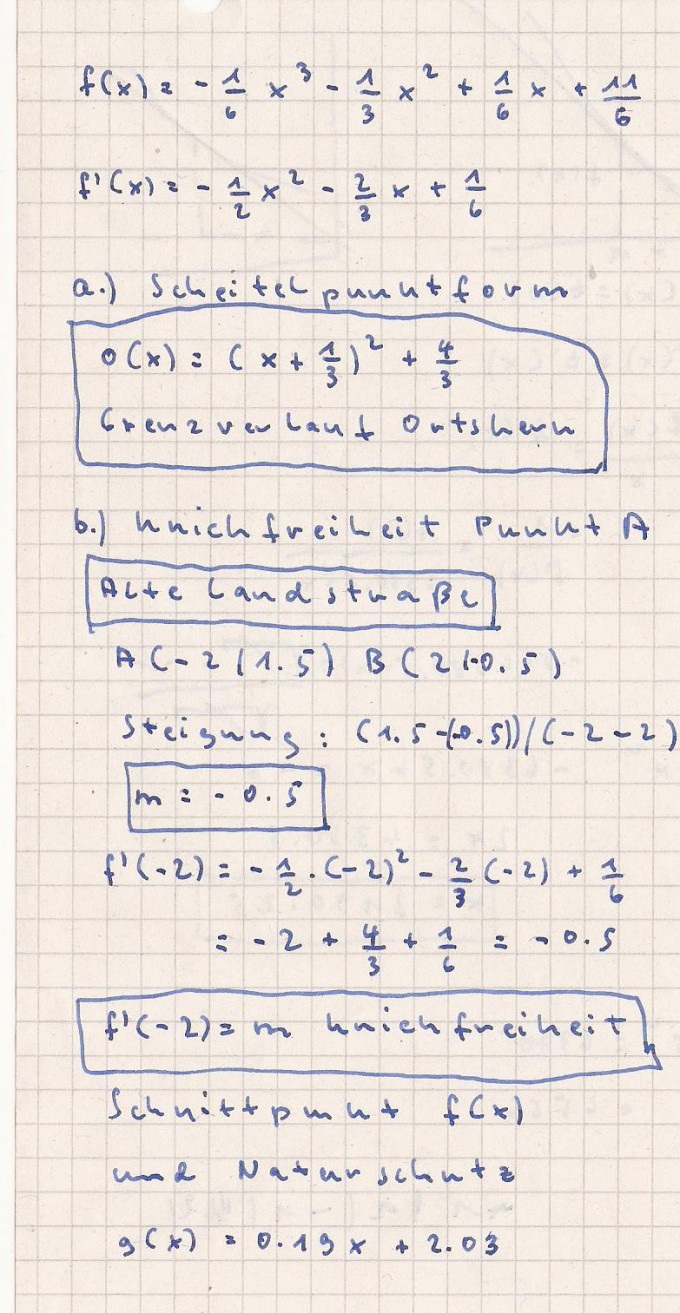 f(x) = - 1/6 x³ - 1/3 x² + 1/6 x + 11/6
f'(x) = - 1/2 x² - 2/3 x + 1/6
a.) Scheitelpunktform
o(x) = (x + 1/3)² + 4/3
Grenzverlauf Ortskern
b.) Knickfreiheit Punkt A
Alte Landstraße
A (-2 | 1.5) B (2 | -0.5)
Steigung : (1.5 -(-0.5)) / (-2 - 2)
m = - 0.5
f'(-2) = - 1/2 · (-2)² - 2/3 (-2) + 1/6
= - 2 + 4/3 + 1/6 = - 0.5
f'(-2) = m Knickfreiheit
Schnittpunkt f(x)
und Naturschutz
g(x) = 0.19x + 2.03